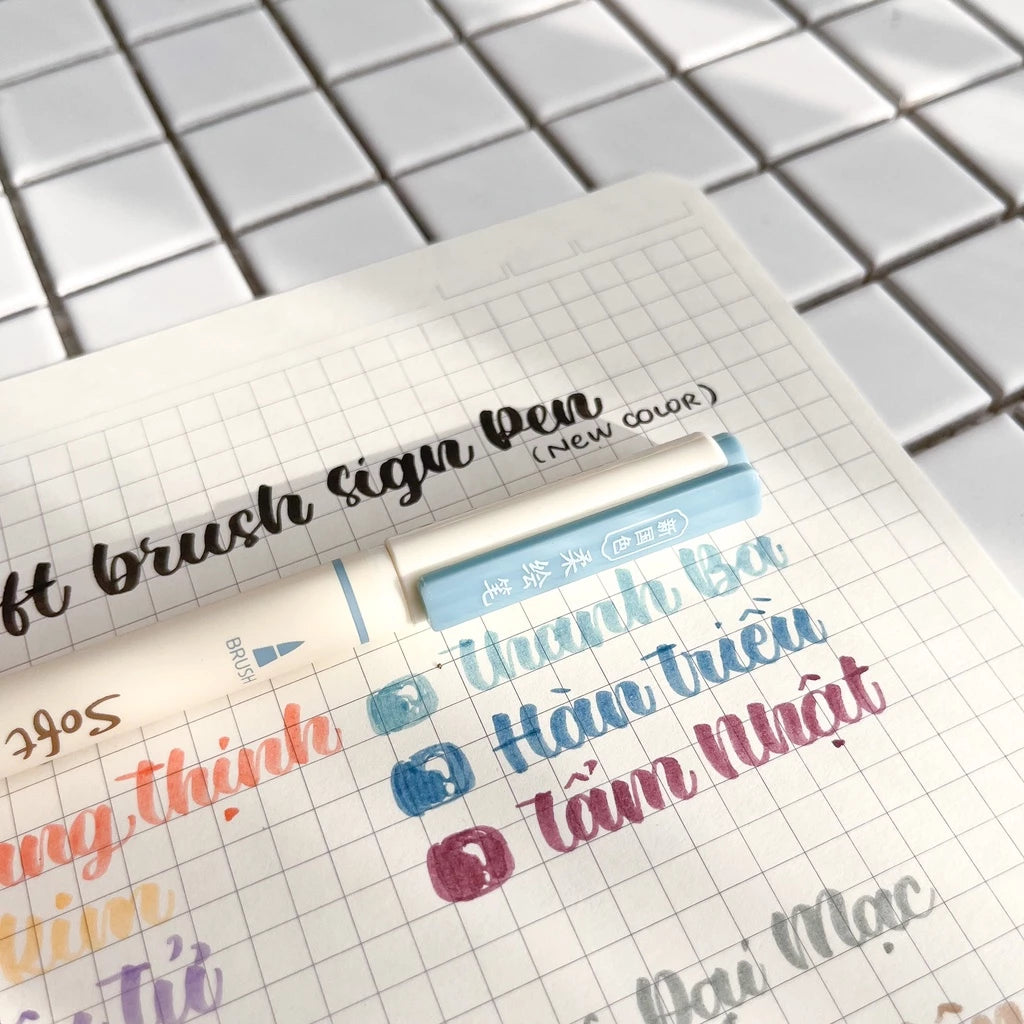 ft brush sign Pen
(NEW COLOR)
新国色
柔绘笔
BRUSH
Soft
Thanh Ba
Hàn Triều
Tấm Nhật
thịnh
Kim
Tử
Đại Mạc